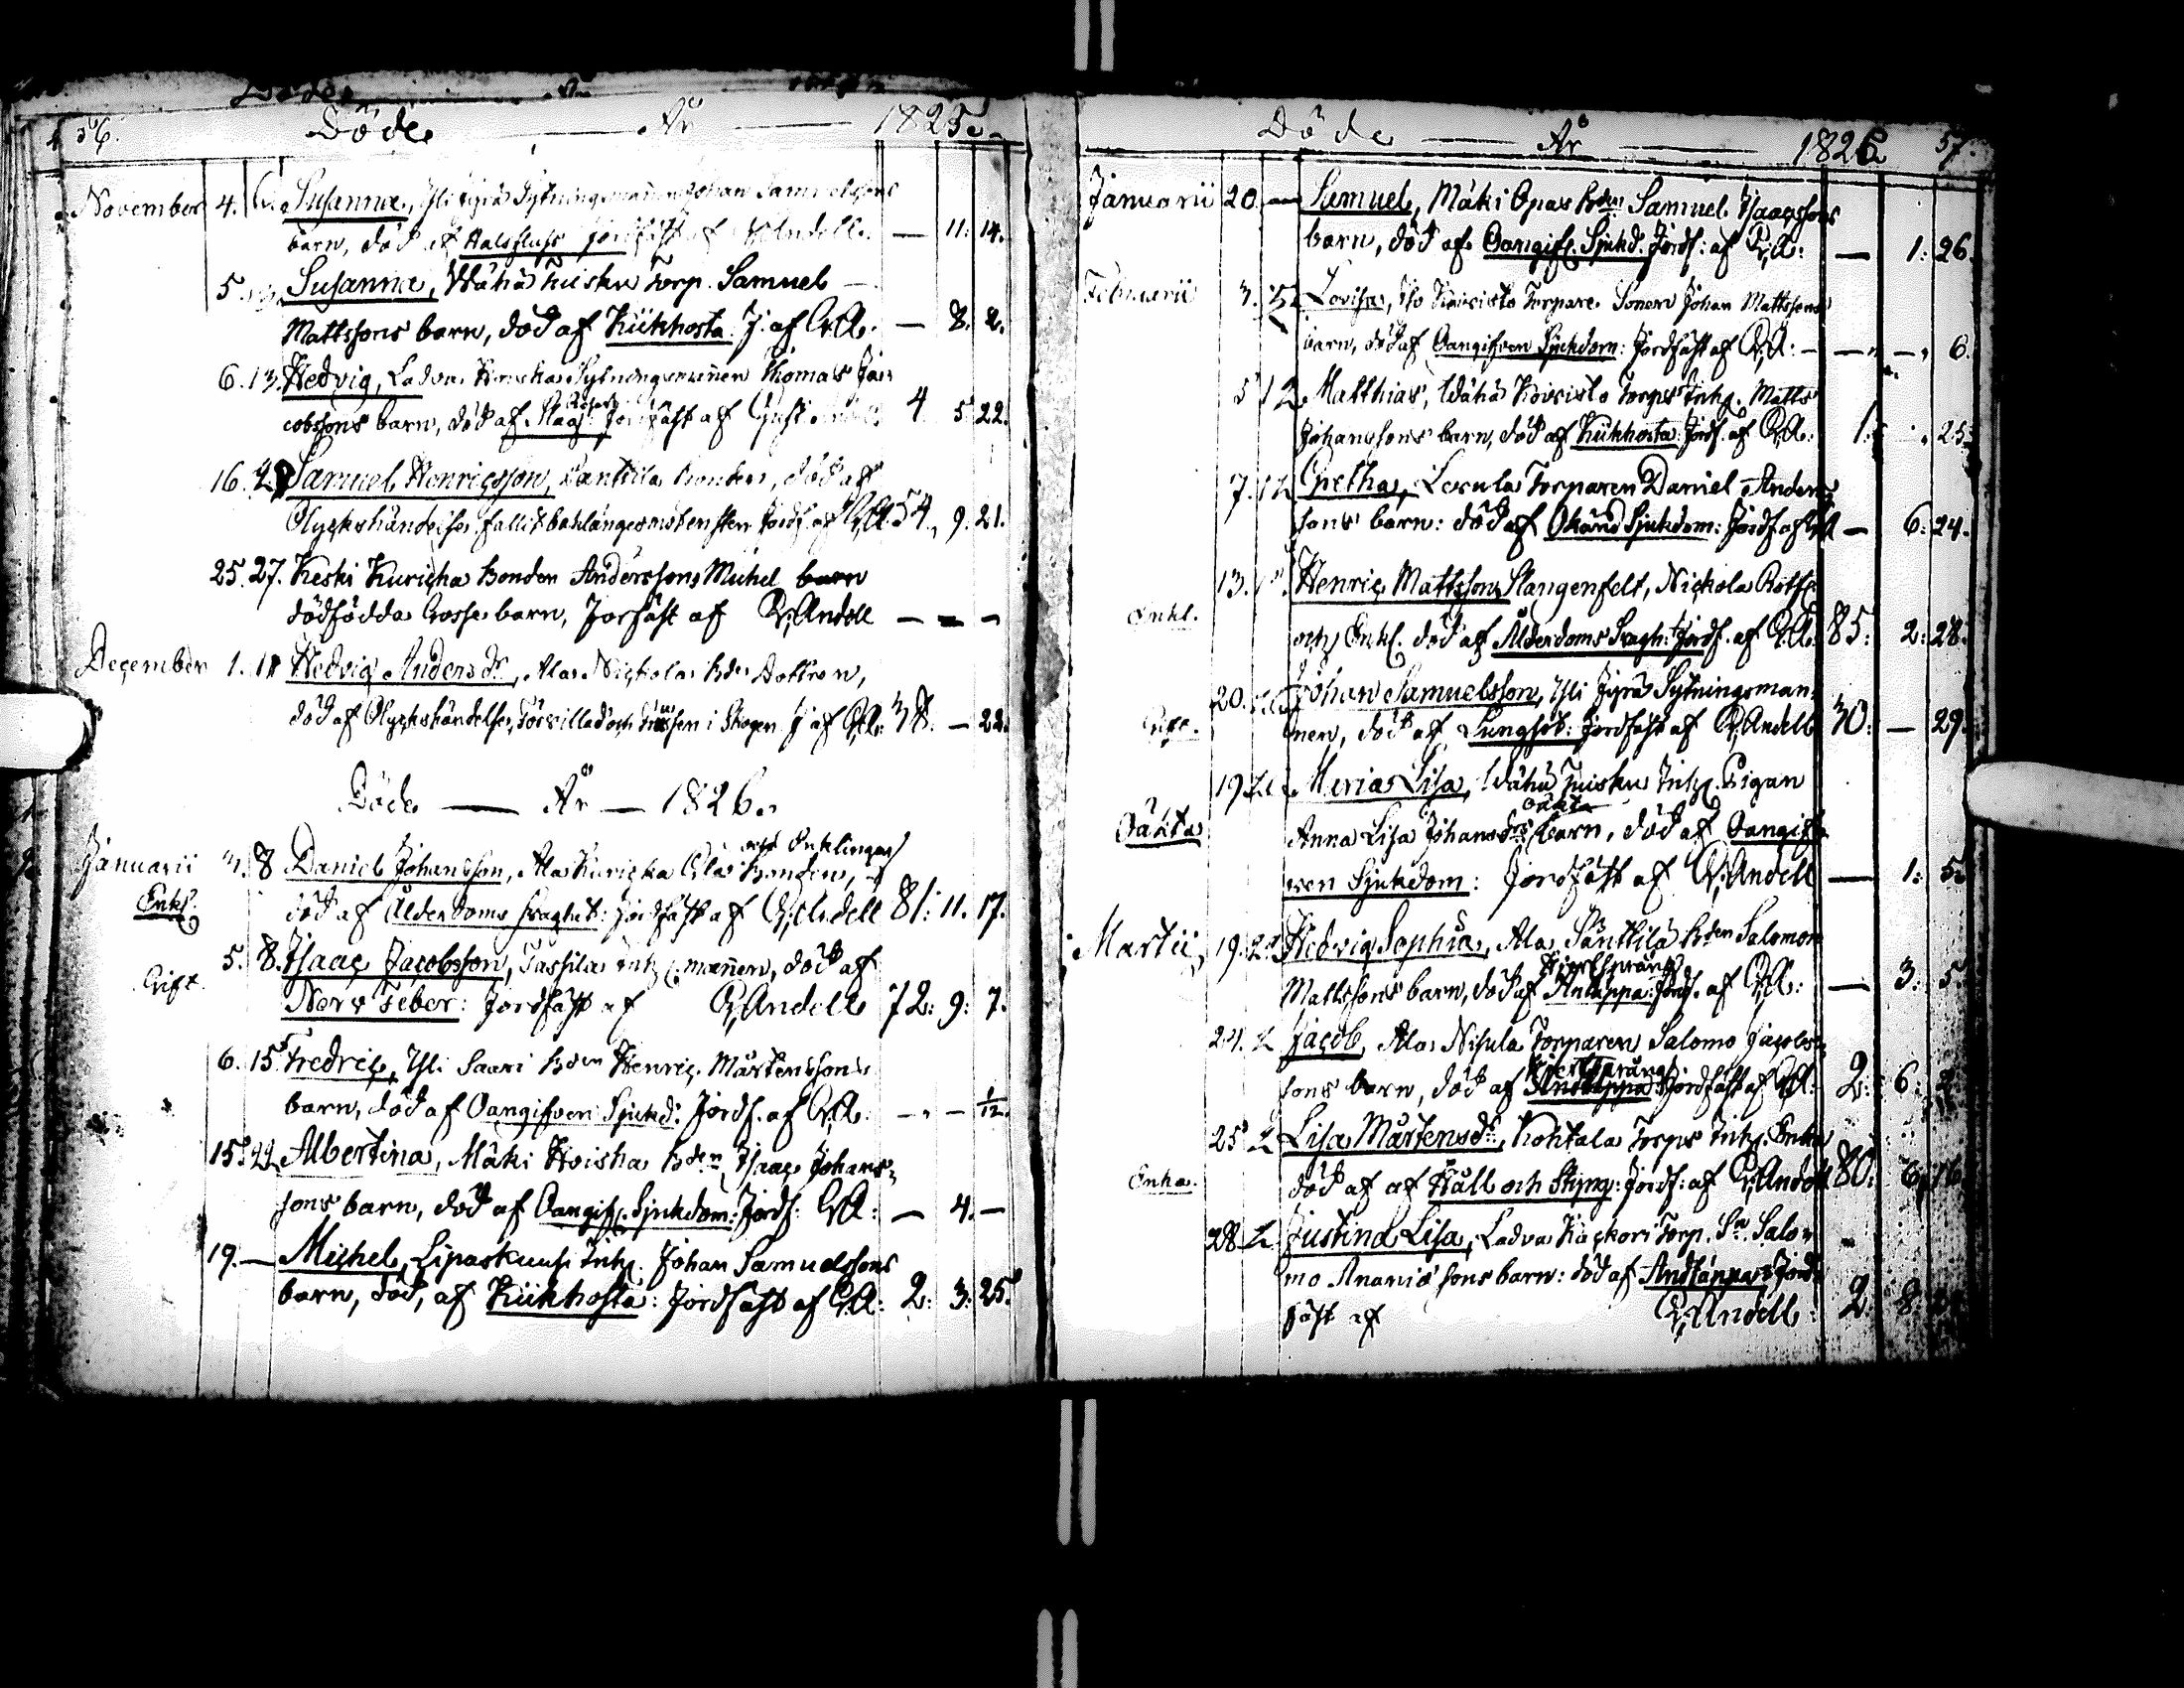 56. Döde — År — 1825.
November 4. Susanna, Yli Jyrä Sytningsmannen Johan Samuelssons
barn, död af Halsfluss jordfäst af Andell. — 11. 14.
5. 13. Susanna, Wähä Tuisku Torp. Samuel
Mattssons barn, död af Kikhosta. J. af G.A. — 8. 2.
6. 13. Hedvig, Ladva Sytningsmannen Thomas Ja-
cobssons barn, död af Mag: Jordfäst af 4 5 22.
16. Samuel Henricsson, Panttila Bonden, död af
Olyckshändelse fallit baklänges Jordf. af G.A. 54. 9. 21.
25. 27. Keski Kuricka Bonden Anderssons Michel barn
dödfödda Gosse barn, Jorfäst af G. Andell — — —
December 1. 11 Hedvig Andersdr, Ala Nickola Bdes Dottren,
död af Olyckshändelse, Förvillad och frusen i Skogen J af G.A: 38. — 22.
Döde — År — 1826.
och Enklingen
Januarii 3. 8 Daniel Johansson, Ala Kuricka Gla Bonden,
Enkl. död af Ålderdoms svaghet: Jordfäst af G. Andell 81: 11. 17.
5. 8. Isaac Jacobsson, Tassila Inh. mannen, död af
Gift. Nerv Feber: Jordfäst af G. Andell 72: 9: 7.
6. 15. Fredric, Yli Saari Bden Henric Mårtenssons
barn, död af Oangifven Sjukd. Jordf. af G.A: — — 1/12.
15. 22. Albertina, Mäki Hoisha Bden Isaac Johans-
sons barn, död af Oangif. Sjukdom: Jordf: G.A: — 4. —
19. — Michel, Lipaskuusi Inh. Johan Samuelssons
barn, död, af Kikhosta: Jordfäst af G.A: 2: 3: 25.
Döde — År — 1826 57.
Januarii 20. — Samuel, Mäki Opas Bden Samuel Isaacssons
barn, död af Oangif. Sjukd. Jordf: af G.A: — 1: 26.
Februarii 3. Lovisa, Iso Koivisto Torpare Sonen Johan Mattssons
barn, död af Oangifven Sjukdom: Jordfäst af G.A: — — 6.
5 12 Matthias, Wähä Koivisto Torps Inh. Matts
Johanssons barn, död af Kikhosta: Jordf. af G.A: 1. 25.
7. 12 Gretha, Lerula Torparen Daniel Anders-
sons barn: död af Okänd Sjukdom: Jordf af G.A — 6: 24.
13. Henric Mattsson Slangenfelt, Nickola
Enkl. och Enkl. död af Ålderdoms Svagh: Jordf. af G.A: 85: 2: 28.
20. Johan Samuelsson, Yli Jyrä Sytningsman-
Gift. nen, död af Lungsot: Jordfäst af G. Andell 30: — 29.
19. Maria Lisa, Wähä Tuisku Inh. Pigan
oäkta
Oäkta Anna Lisa Johansdrs barn, död af Oangif-
ven Sjukdom: Jordfäst af G. Andell — 1: 5.
Martii 19. Hedvig Sophia, Ala Panttila Bden Salomon
Hjertsprång
Mattssons barn, död af Andtäppa: Jordf. af G.A: — 3: 5.
Jacob, Ala Nisula Torparen Salomo Jacobs-
Hjertsprång
sons barn, död af Andtäppa: Jordfäst af G.A: 2: 6: 2.
25 Lisa Mårtensdr, Kohtala Torps Inh. Enka
Enka. död af af Håll och Styng: Jordf: af G. Andell 80. 6.
28 Justina Lisa, Ladva Torp. Sn. Salo-
mo Ananiæ sons barn: död af Andtäppa: Jord-
fäst af G. Andell: 2 8